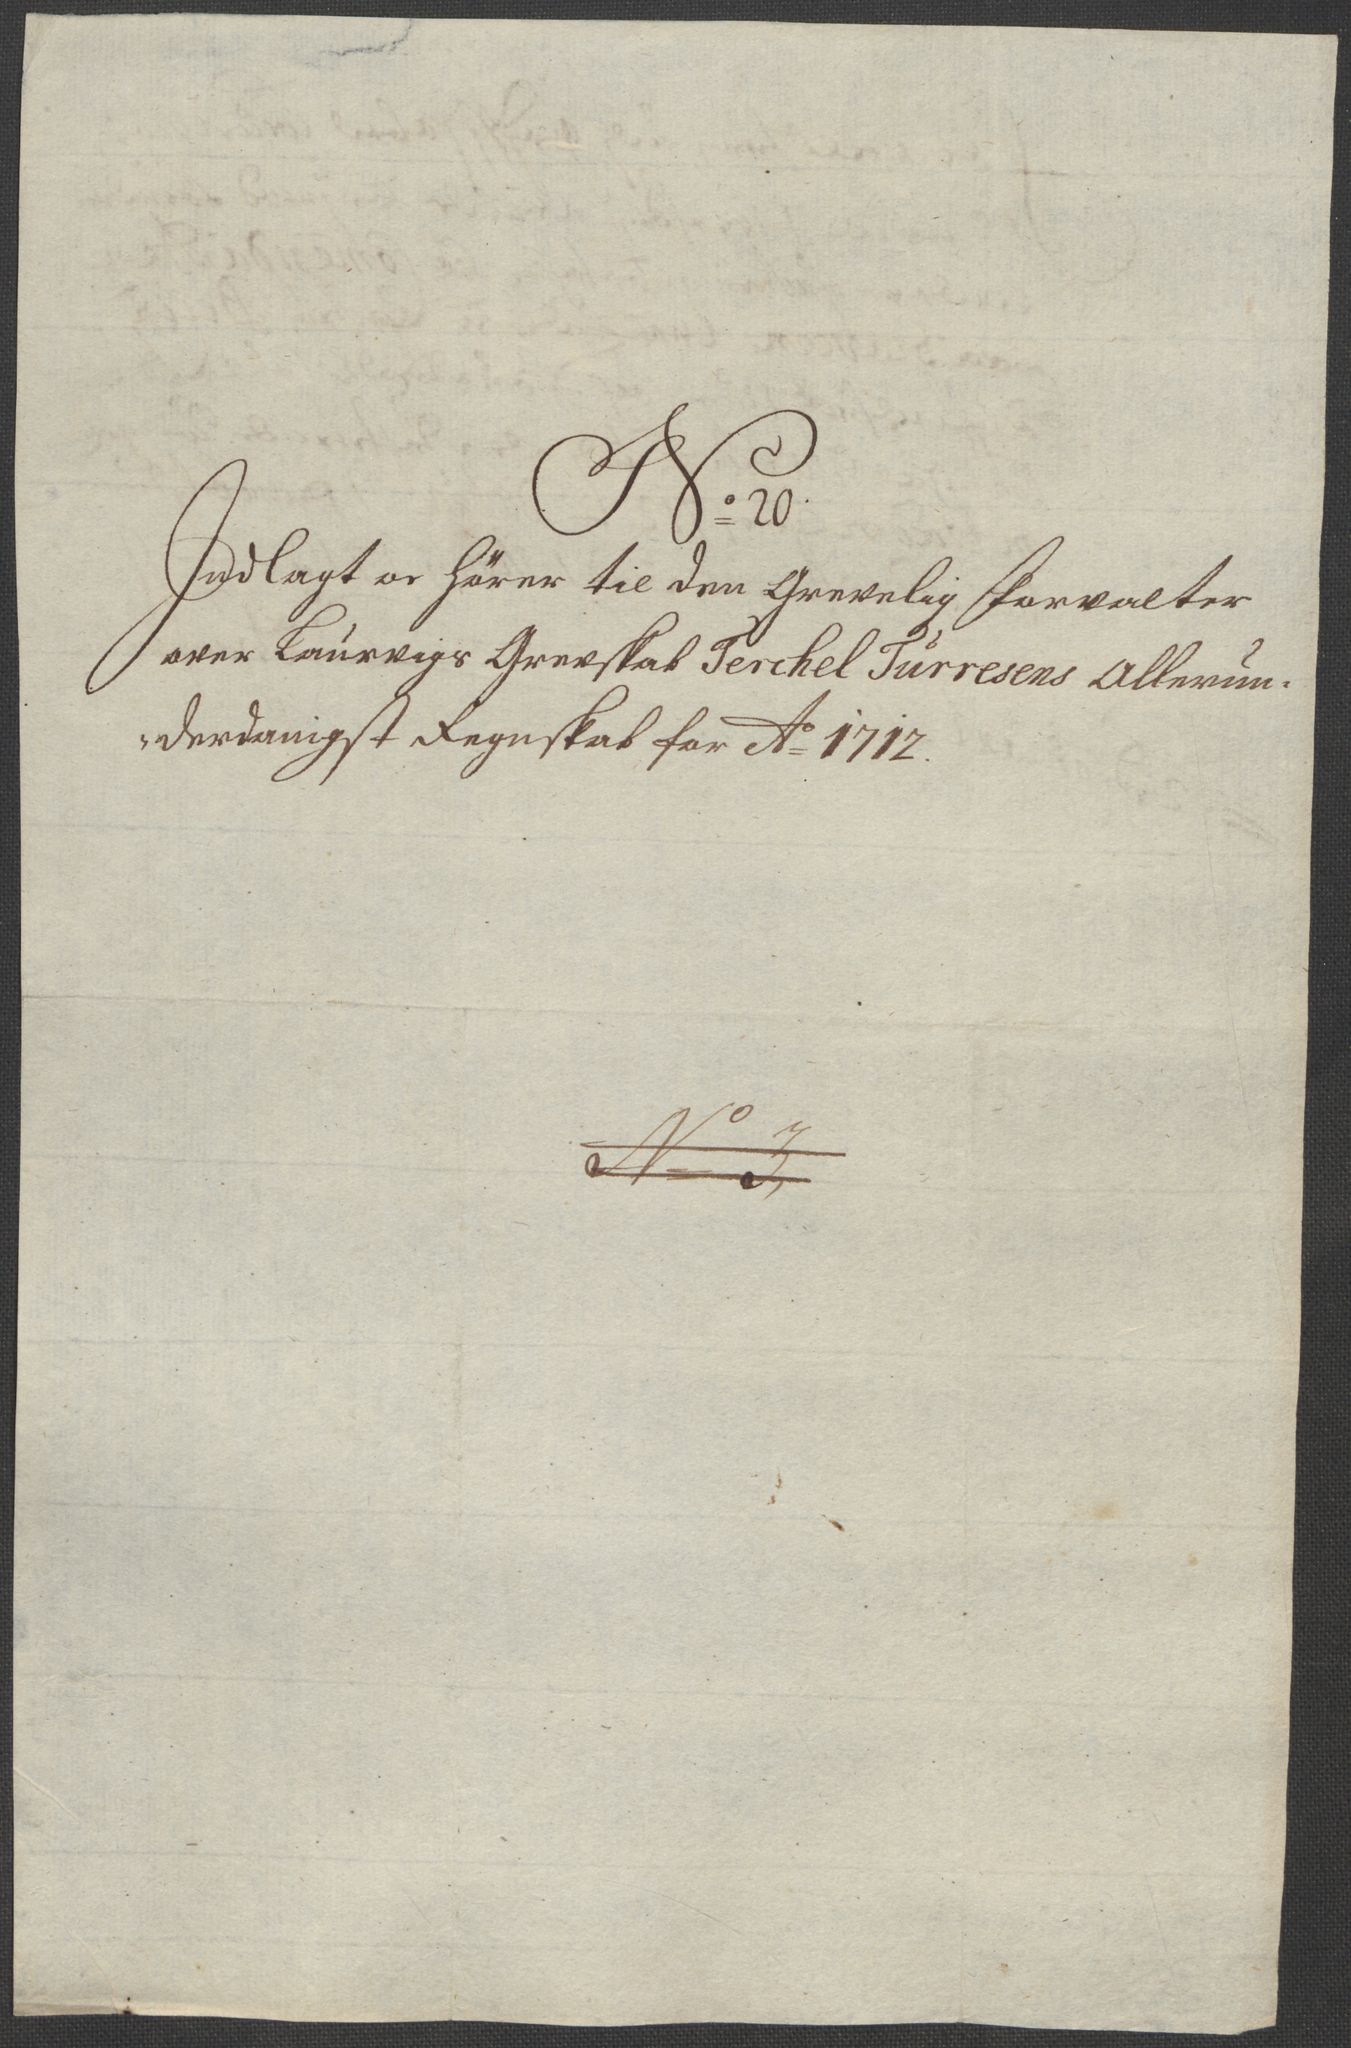 No 20.
Indlagt oc hörer til den Grevelig forvalter
over Laurvigs Grevskab Terchel Turresens Allerun-
derdanigst Regnskab for Ao 1712.
No 3,